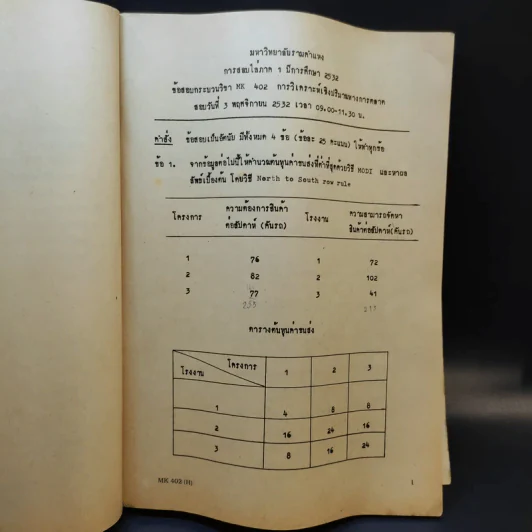 มหาวิทยาลัยรามคำแหง
การสอบไล่ภาค 1 ปีการศึกษา 2532
ข้อสอบกระบวนวิชา MK 402 การวิเคราะห์เชิงปริมาณทางการตลาด
สอบวันที่ 3 พฤศจิกายน 2532 เวลา 09.00-11.30 น.
คำสั่ง ข้อสอบเป็นอัตนัย มีทั้งหมด 4 ข้อ (ข้อละ 25 คะแนน) ให้ทำทุกข้อ
ข้อ 1. จากข้อมูลต่อไปนี้ให้คำนวณต้นทุนค่าขนส่งที่ต่ำที่สุดด้วยวิธี MODI และหาผล
ลัพธ์เบื้องต้น โดยวิธี North to South row rule
โครงการ ความต้องการสินค้า โรงงาน ความสามารถจัดหา
ต่อสัปดาห์ (คันรถ) สินค้าต่อสัปดาห์(คันรถ)
1 76 1 72
2 82 2 102
3 77 3 41
235
ตารางต้นทุนค่าขนส่ง
โครงการ 1 2 3
โรงงาน
1 4 8 8
2 16 24 16
3 8 16 24
MK 402 (H) 1